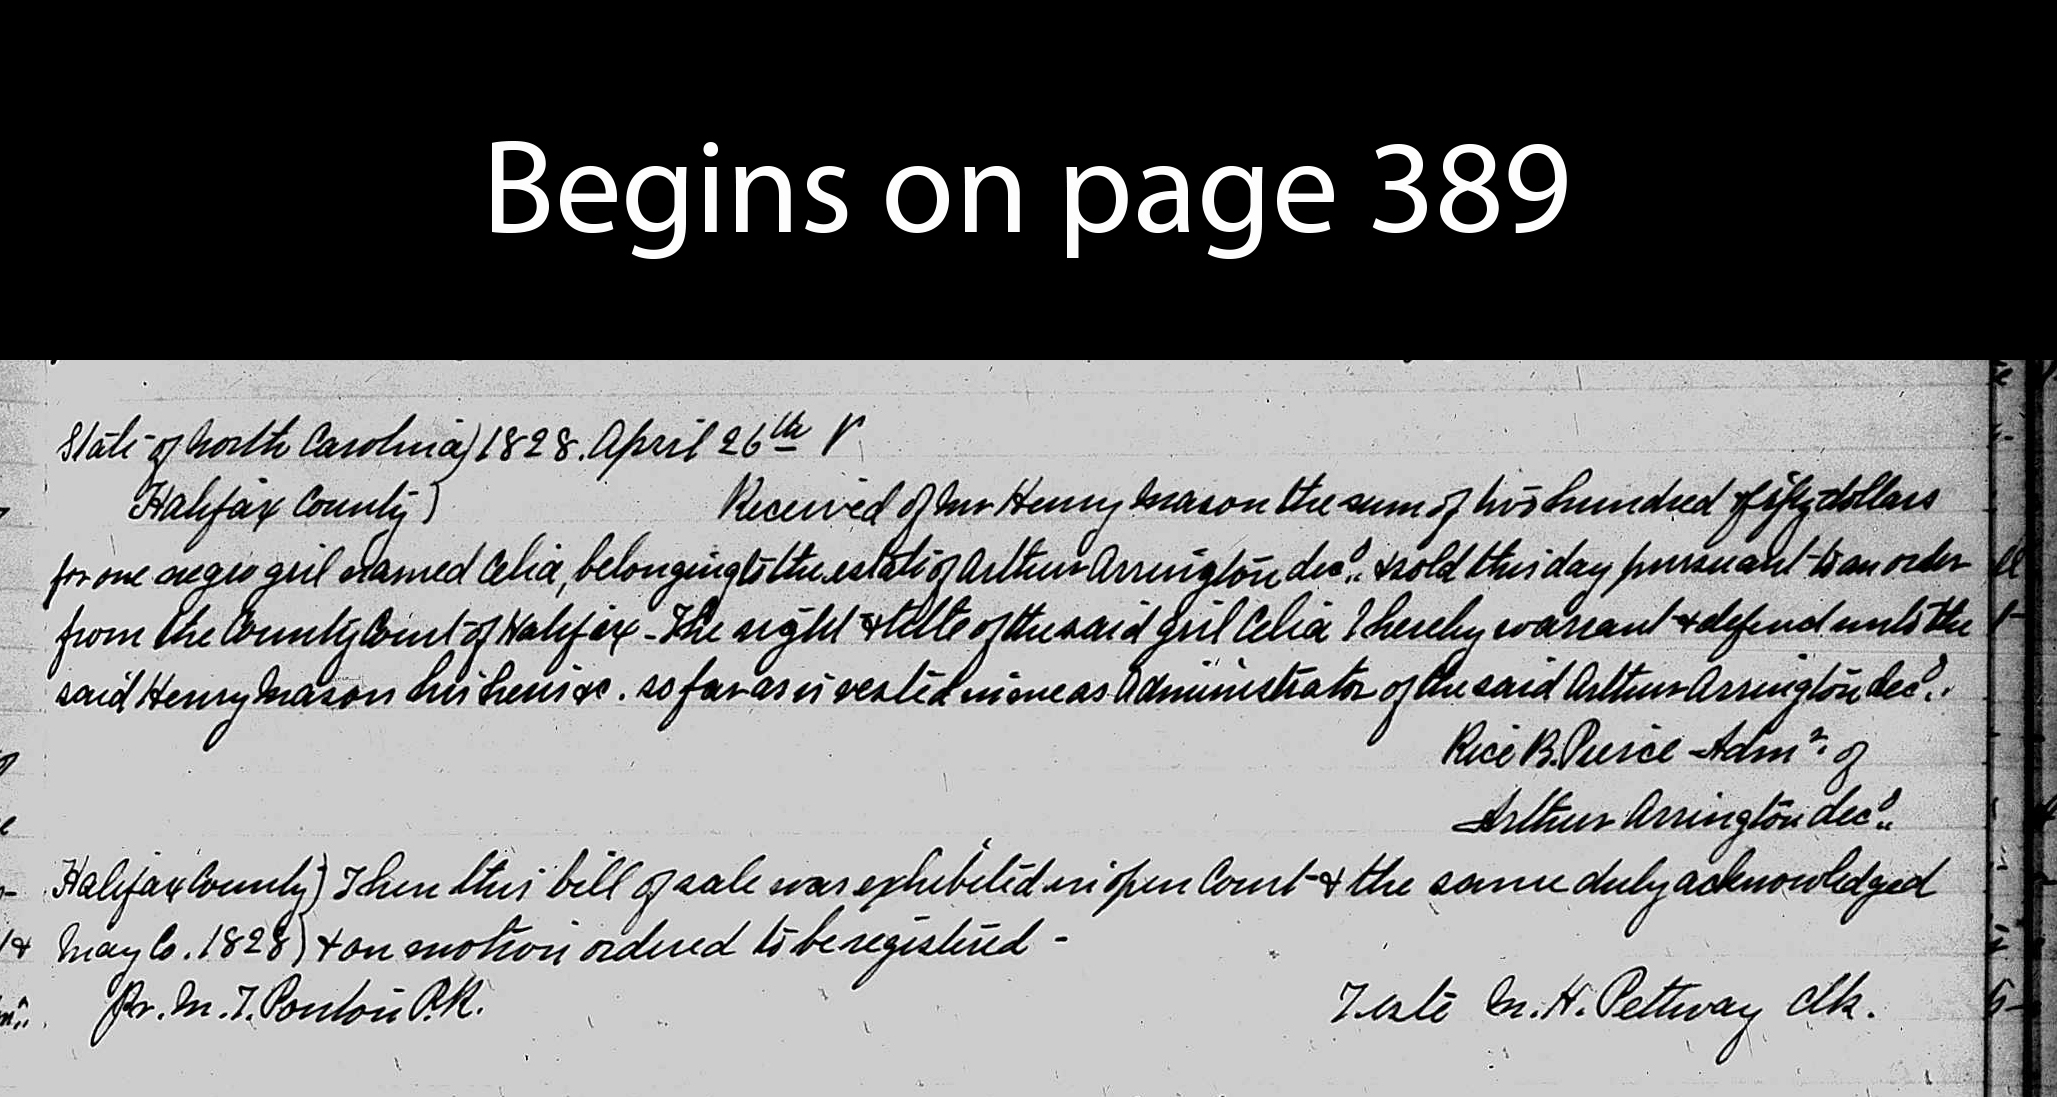 Begins on page 389
State of North Carolina) 1828. April 26th V
Halifax County) Received of Mr Henry Mason the sum of two hundred & fifty dollars
for one negro girl named Celia, belonging to the estate of Arthur Arrington decd.. & sold this day pursuant to an order
from the County Court of Halifax - The right & title of the said girl Celia I hereby warrant & defend unto the
said Henry Mason his heirs &c. so far as is vested in me as Administrator of the said Arthur Arrington decd..
Rice B. Pierce Admr. of
Arthur Arrington decd..
Halifax County) Then this bill of sale was exhibited in open Court & the same duly acknowledged
May Co. 1828) & on motion ordered to be registered -
Pr. M. T. Ponton P.R.
Teste M. H. Pettway Clk.